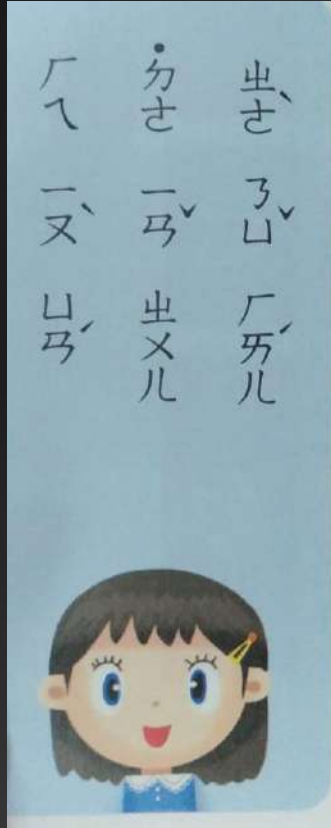 ㄓㄜˋ ㄋㄩˇ ㄏㄞˊㄦ
˙ㄉㄜ ㄧㄢˇ ㄓㄨㄦ
ㄏㄟ ㄧㄡˋ ㄩㄢˊ